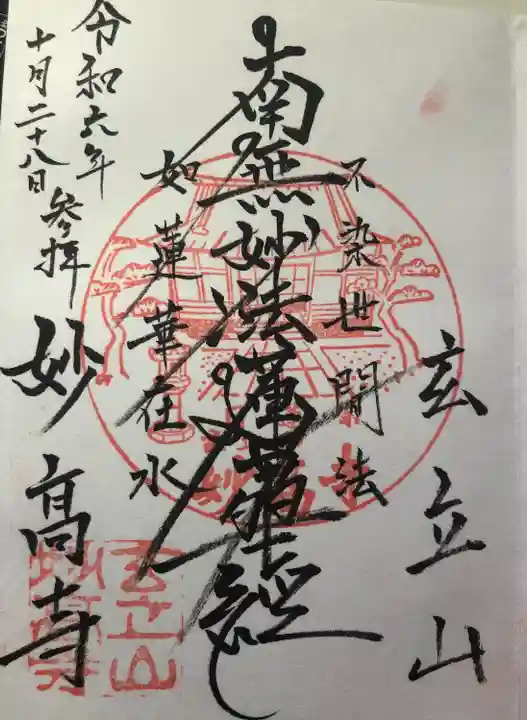 玄立山
不染世間法
南無妙法蓮華経
如蓮華在水
令和六年
十月二十八日
参拝
妙高寺